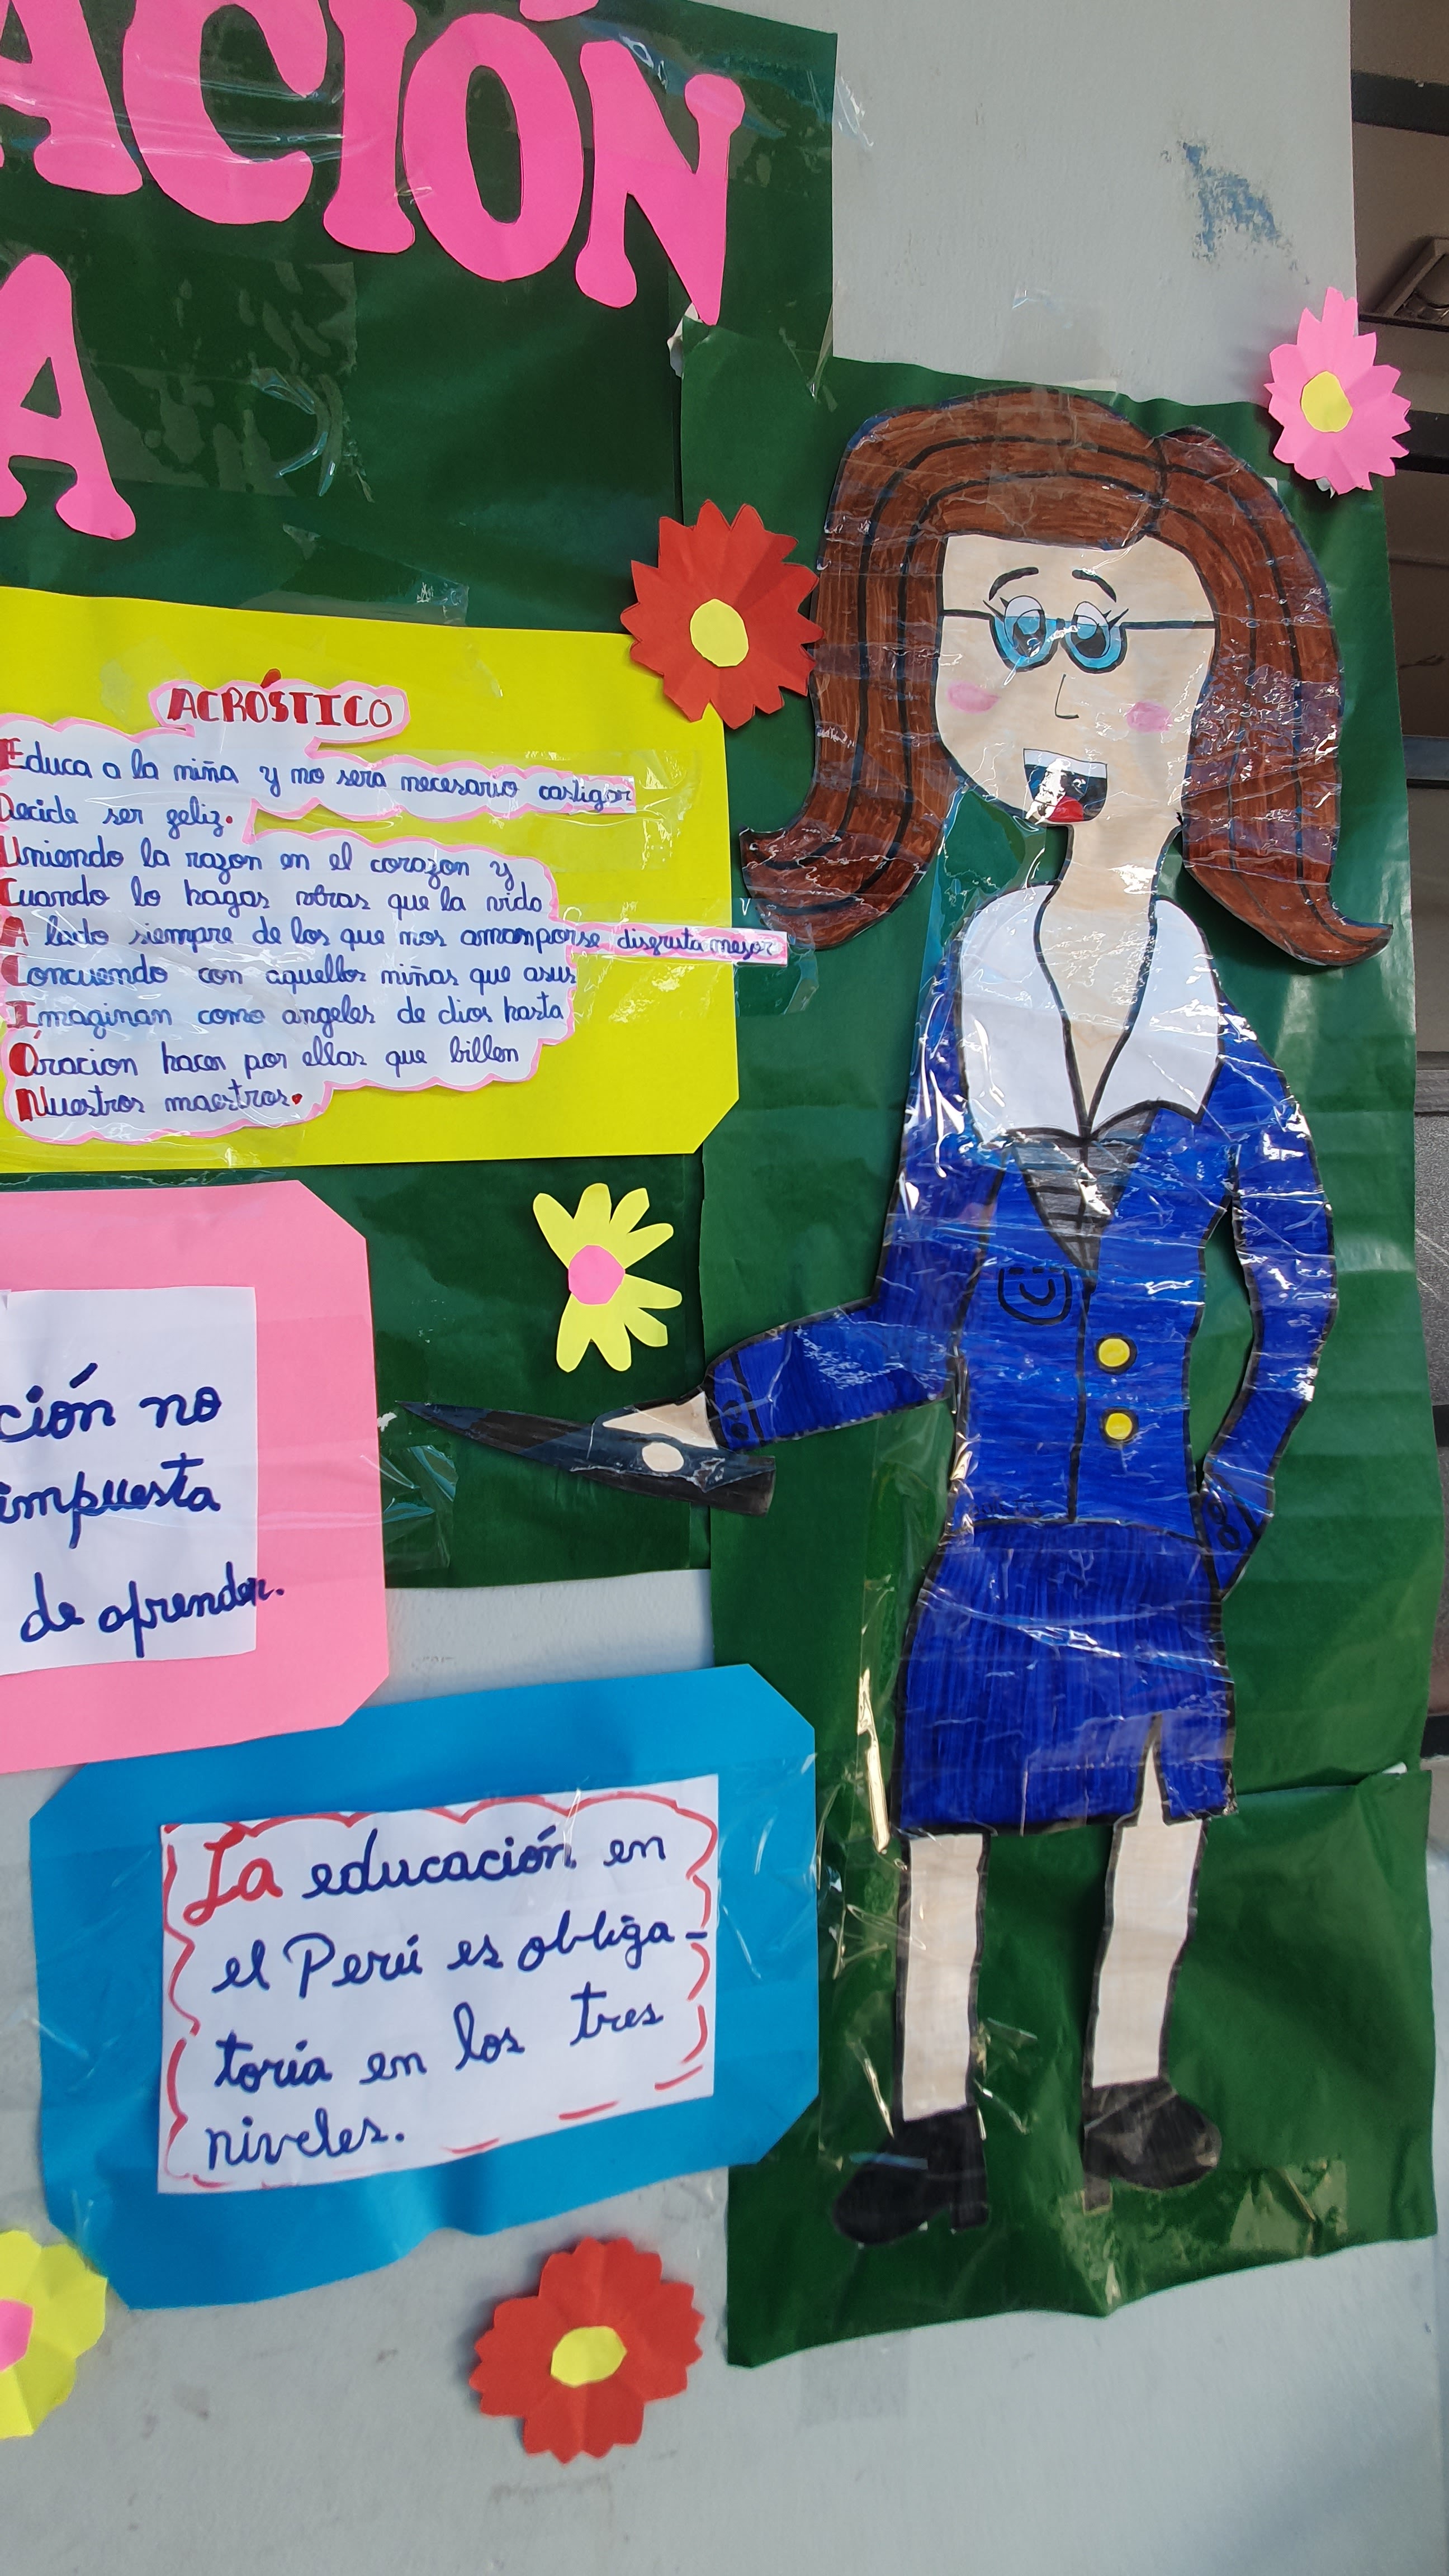 ACIÓN
A
ACRÓSTICO
Educa a la niña y no sera necesario castigar
Decide ser feliz.
Uniendo la razon en el corazon y
Cuando lo hagas que la vida
A lado siempre de los que nos disfruta mejor
con aquellos niñas que
Imaginan como angeles de dios hasta
Oracion hacer por ellas que billen
Nuestros maestros.
ción no
impuesta
de aprender.
La educación en
el Perú es obliga-
toria en los tres
niveles.